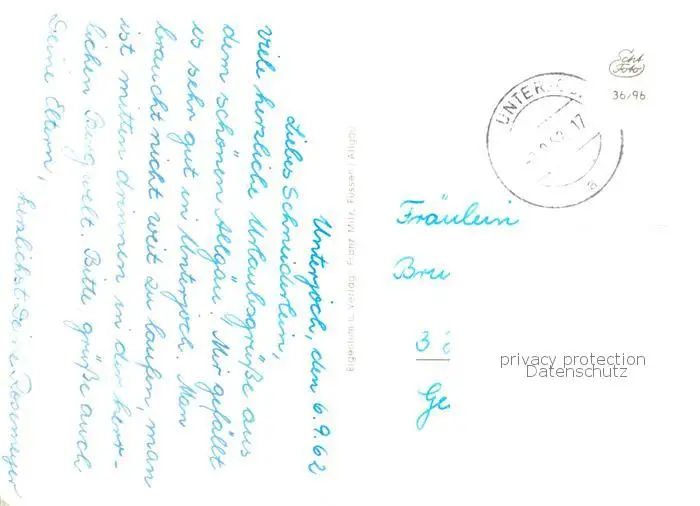 Unterjoch, den 6.9.62
Liebes Schneiderlein,
Viele herzliche Urlaubsgrüße aus
dem schönen Allgäu. Mir gefällt
es sehr gut in Unterjoch. Man
braucht nicht weit zu laufen, man
ist mitten drinnen in der herr-
lichen Bergwelt. Bitte, grüße auch
Deine Eltern,
herzlichst Deine Rosemeyer
Eigentum u. Verlag Franz Milz, Füssen / Allgäu
Echt
Foto
36/96
UNTERJOCH
17
a
Fräulein
Bru
3
Ge
privacy protection
Datenschutz